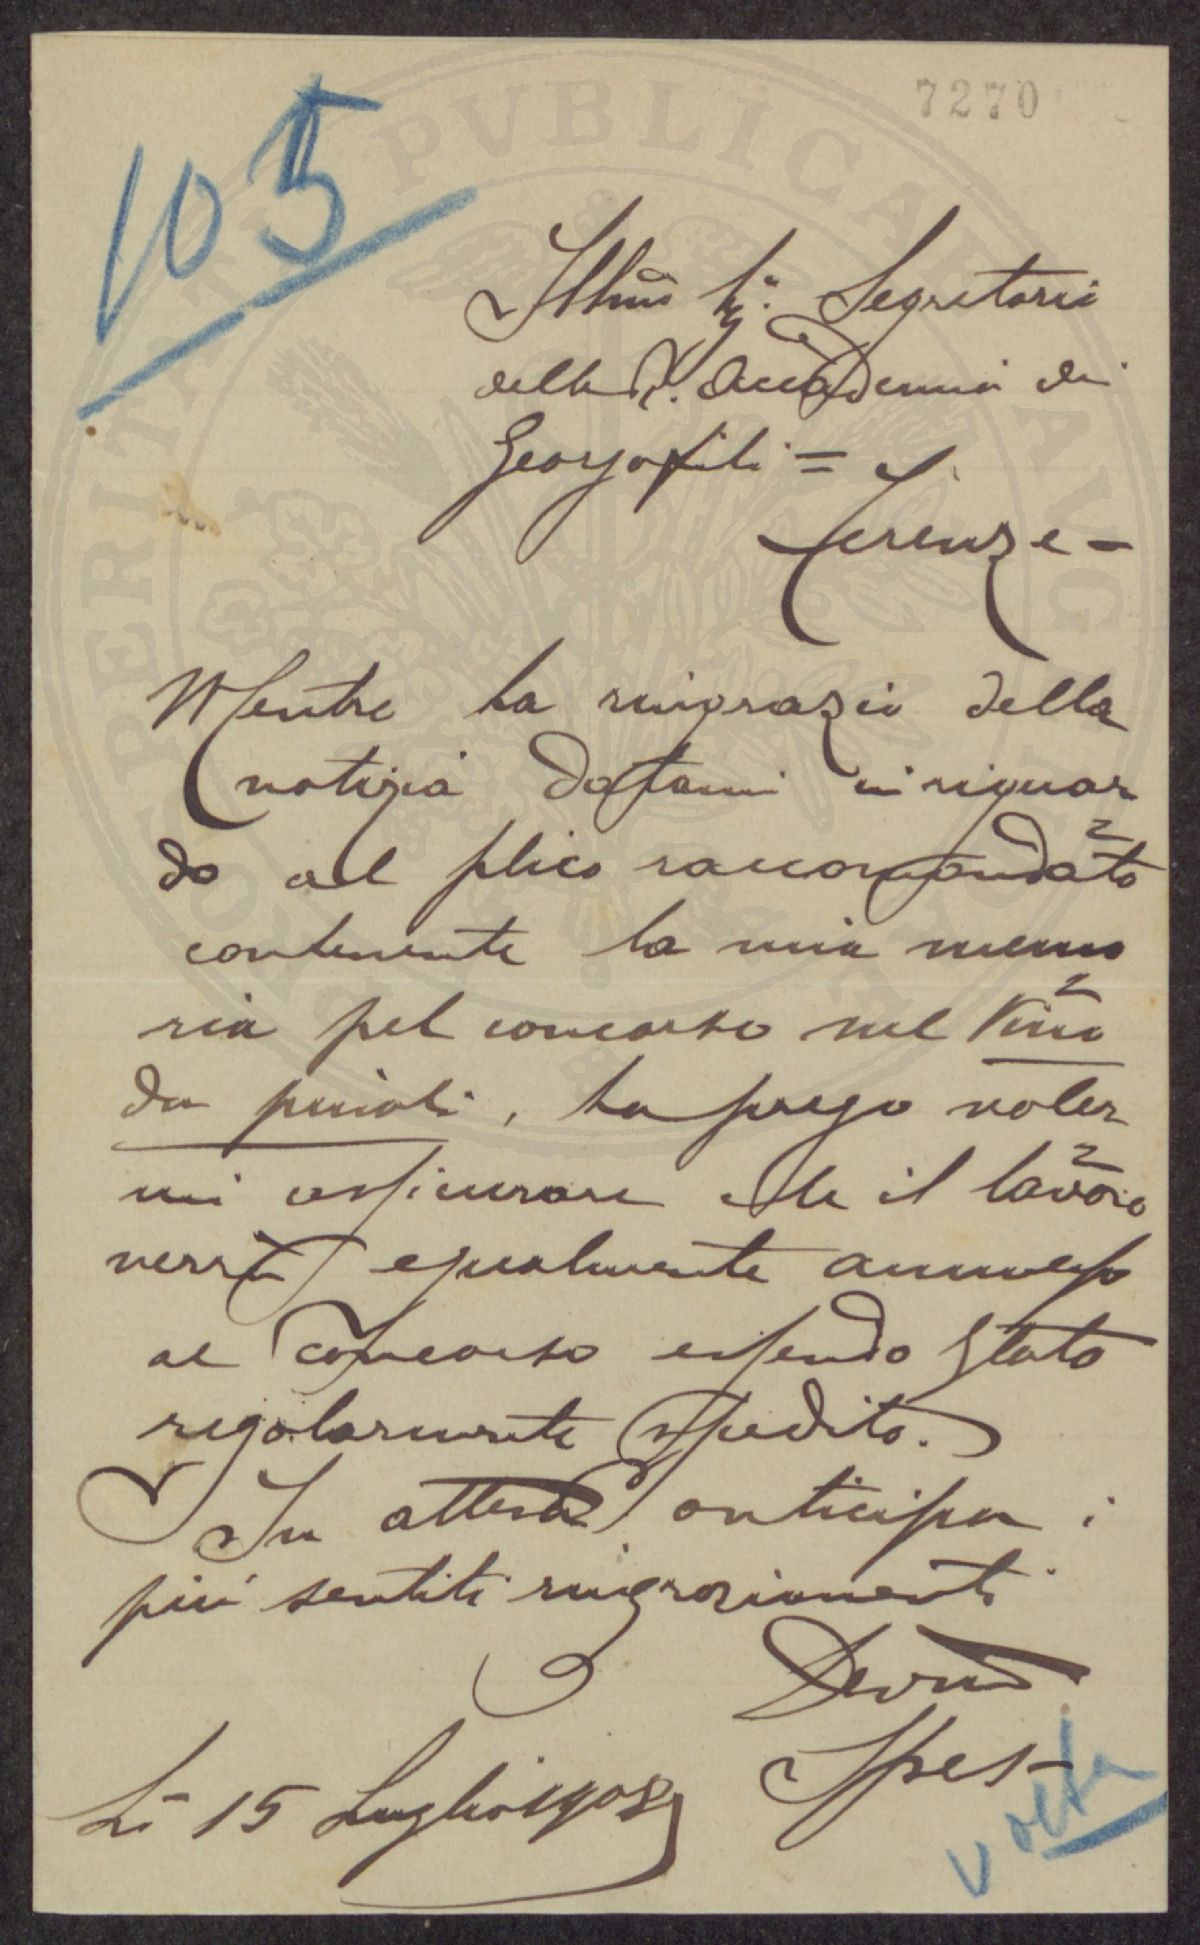 7270
105
Illmo Sig. Segretario
della R. Accademia dei
Georgofili =
Firenze -
Mentre La ringrazio della
notizia datami in riguar
do al plico raccomandato
contenente la mia memo
ria pel concorso nel Vino
da pasto, La prego voler
mi assicurare che il lavoro
verrà egualmente ammesso
al Concorso essendo stato
regolarmente spedito.
In attesa anticipa i
più sentiti ringraziamenti
Devmo
Spes -
Lì 15 Luglio 1908
volta
PVBLICAE